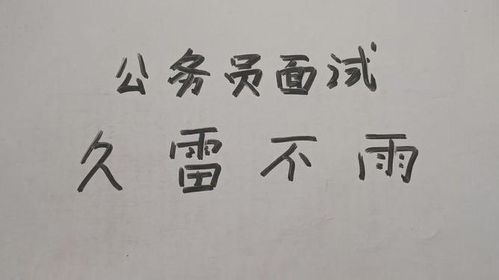 公务员面试
久雷不雨